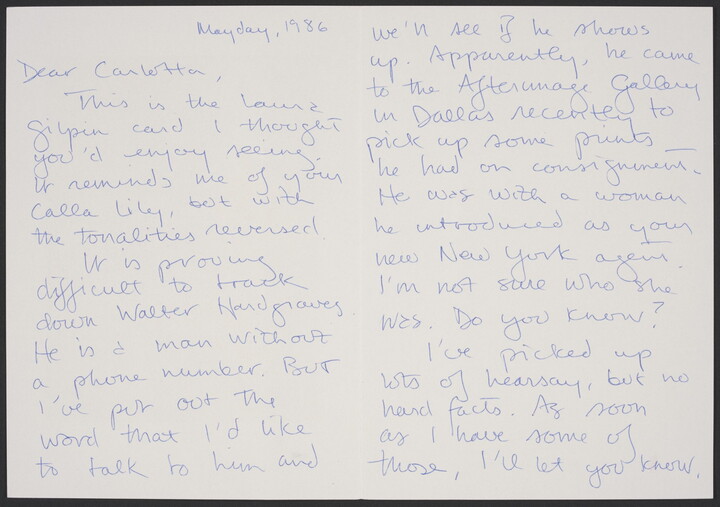 Mayday, 1986
Dear Carlotta,
This is the Laura
Gilpin card I thought
you'd enjoy seeing.
It reminds me of your
Calla Lily, but with
the tonalities reversed.
It is proving
difficult to track
down Walter Hardgraves.
He is a man without
a phone number. But
I've put out the
word that I'd like
to talk to him and
we'll see if he shows
up. Apparently, he came
to the Afterimage Gallery
in Dallas recently to
pick up some prints
he had on consignment.
He was with a woman
he introduced as your
new New York agent.
I'm not sure who she
was. Do you know?
I've picked up
lots of hearsay, but no
hard facts. As soon
as I have some of
those, I'll let you know.